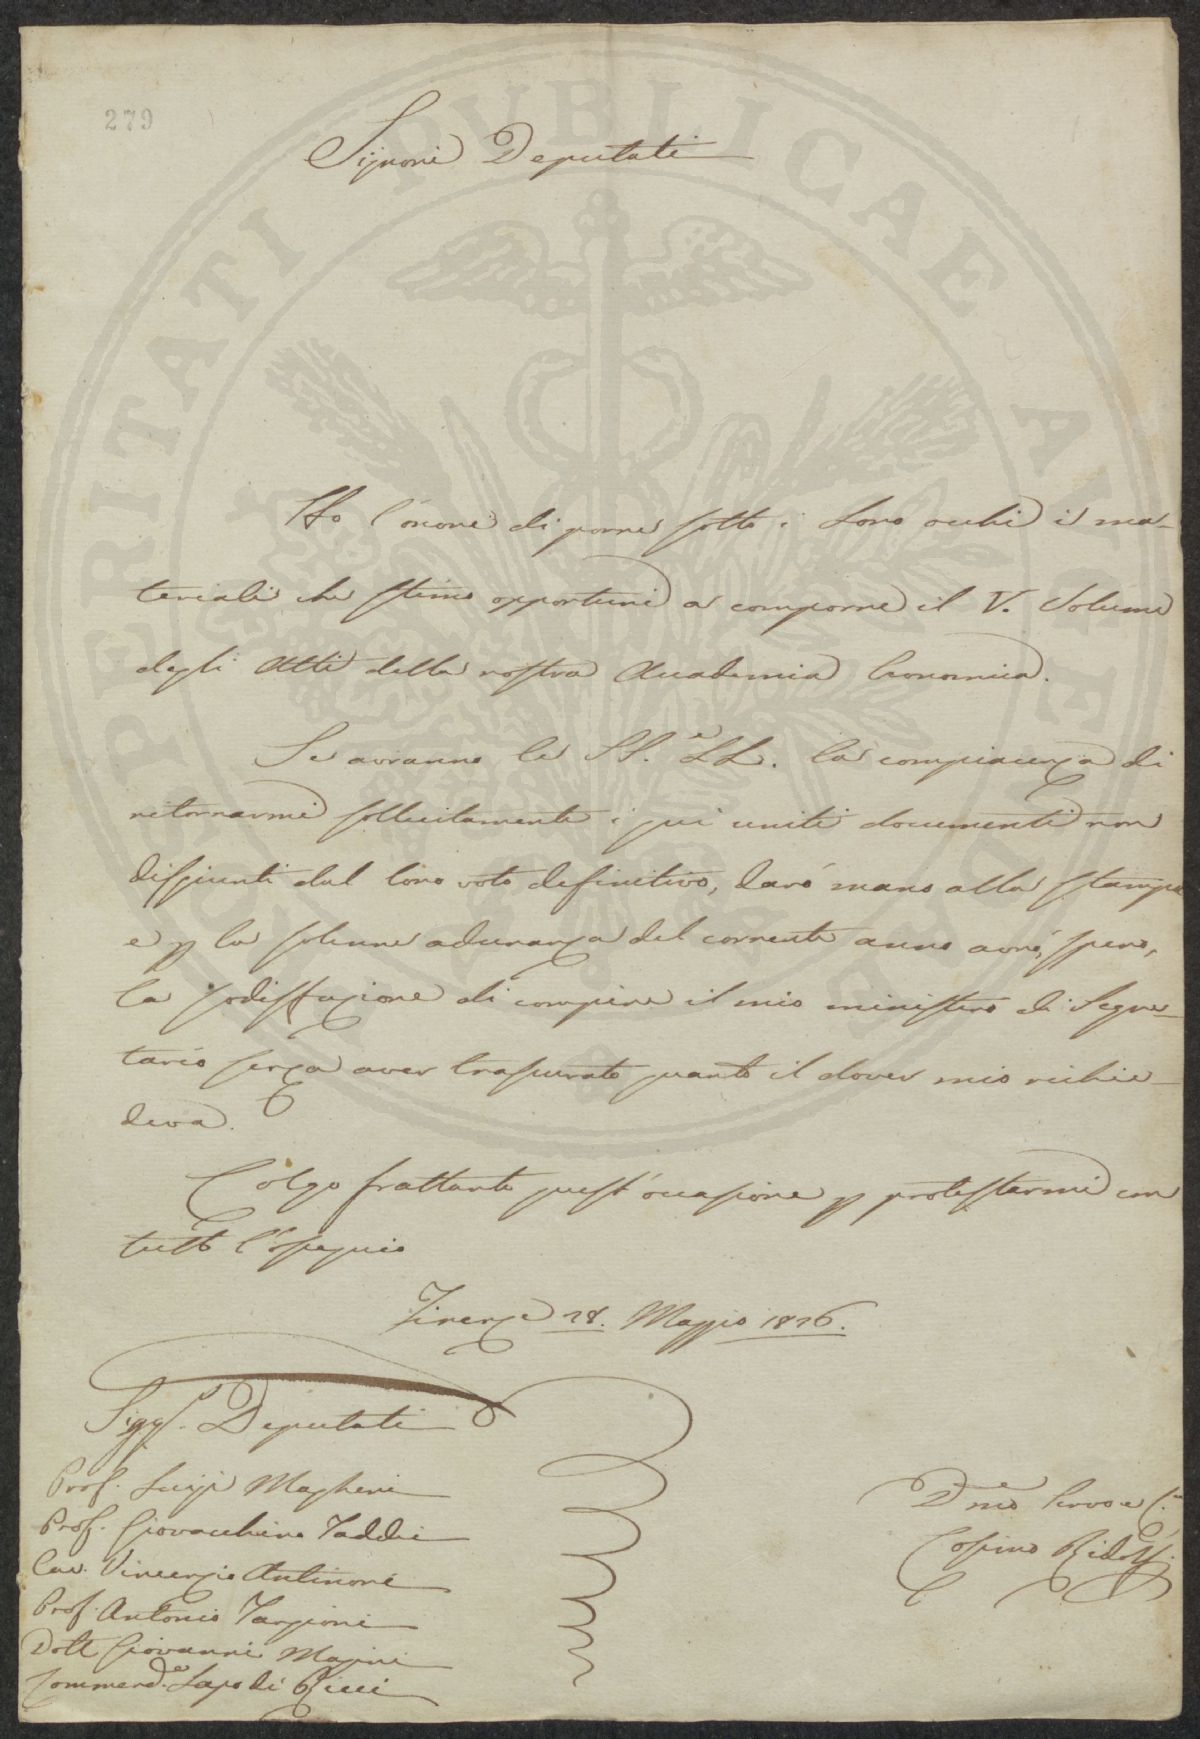 279
Signori Deputati
Ho l'onore di porre sotto i Loro occhi i ma-
teriali che stimo opportuni a comporre il V. Volume
degli Atti della nostra Accademia Economica.
Se avranno le SS.e LL. la compiacenza di
ritornarmi sollecitamente i qui uniti documenti non
disgiunti dal loro voto definitivo, darò mano alla stampa
e p la solenne adunanza del corrente anno avrò, spero,
la sodisfazione di compire il mio ministero di Segre-
tario senza aver trascurato quanto il dover mio richie-
deva.
Colgo frattanto quest'occasione p protestarmi con
tutto l'ossequio
Firenze 28. Maggio 1826.
Sigg.i Deputati
Prof. Luigi Magheri
Prof. Giovacchino Taddei
Cav. Vincenzio Antinori
Prof. Antonio Targioni
Dott Giovanni Magini
Commend.e Lapo de' Ricci
D mo Servo e
Cosimo Ridolfi
PROSPERITATI PUBLICAE AUGENDAE